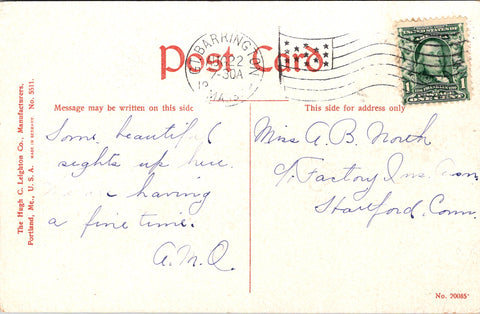 Post Card
GT. BARRINGTON
22
7-30A
MASS.
Message may be written on this side
This side for address only
Some beautiful
sights up here.
having
a fine time.
A.N.Q.
Miss A. B. North
c/o Factory Ins. Assn
Hartford, Conn.
The Hugh C. Leighton Co., Manufacturers,
Portland, Me., U. S. A. MADE IN GERMANY No. 5511.
No. 20085